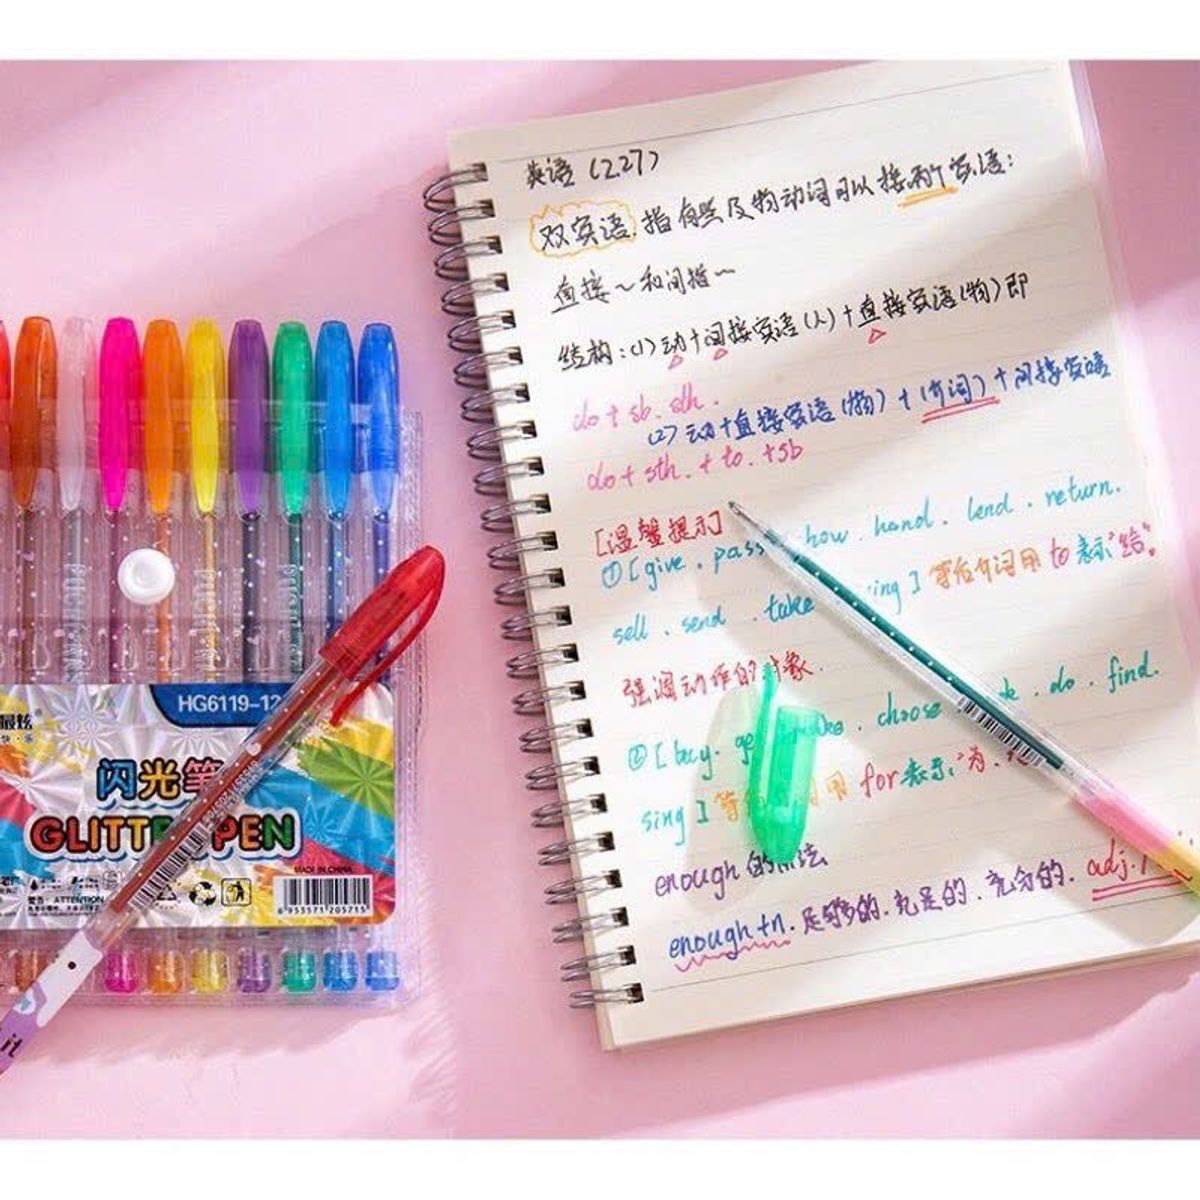 英语（227）
双宾语.指有些及物动词可以接两个宾语：
直接～和间接～
结构：(1)动+间接宾语(人)+直接宾语(物)即
do + sb. sth.
(2)动+直接宾语(物)+(介词)+间接宾语
do + sth. + to. + sb
[温馨提示]
①[give . pass how . hand . lend . return.
sell . send . take ing]等后介词用to表示"给"。
强调动作的对象.
②[buy. choose do . find.
sing]等 用for表示"为.
enough的用法
enough+n. 足够的.充足的.充分的. adj.
HG6119-12
闪光笔
GLITT PEN
MADE IN CHINA
ATTENTION
6 953571 205715